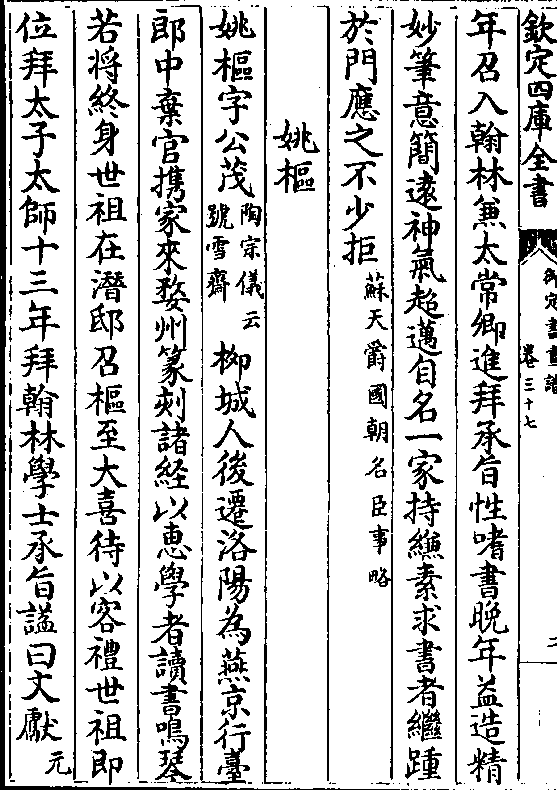 欽定四庫全書
御定書畫譜
卷三十七
二
年召入翰林兼太常卿進拜承旨性嗜書晚年益造精
妙筆意簡遠神氣超邁自名一家持縑素求書者繼踵
於門應之不少拒蘇天爵國朝名臣事略
姚樞
姚樞字公茂陶宗儀云號雪齋柳城人後遷洛陽為燕京行臺
郎中棄官携家來婺州篆刻諸経以惠學者讀書鳴琴
若将終身世祖在潛邸召樞至大喜待以客禮世祖即
位拜太子太師十三年拜翰林學士承旨謚曰文獻元